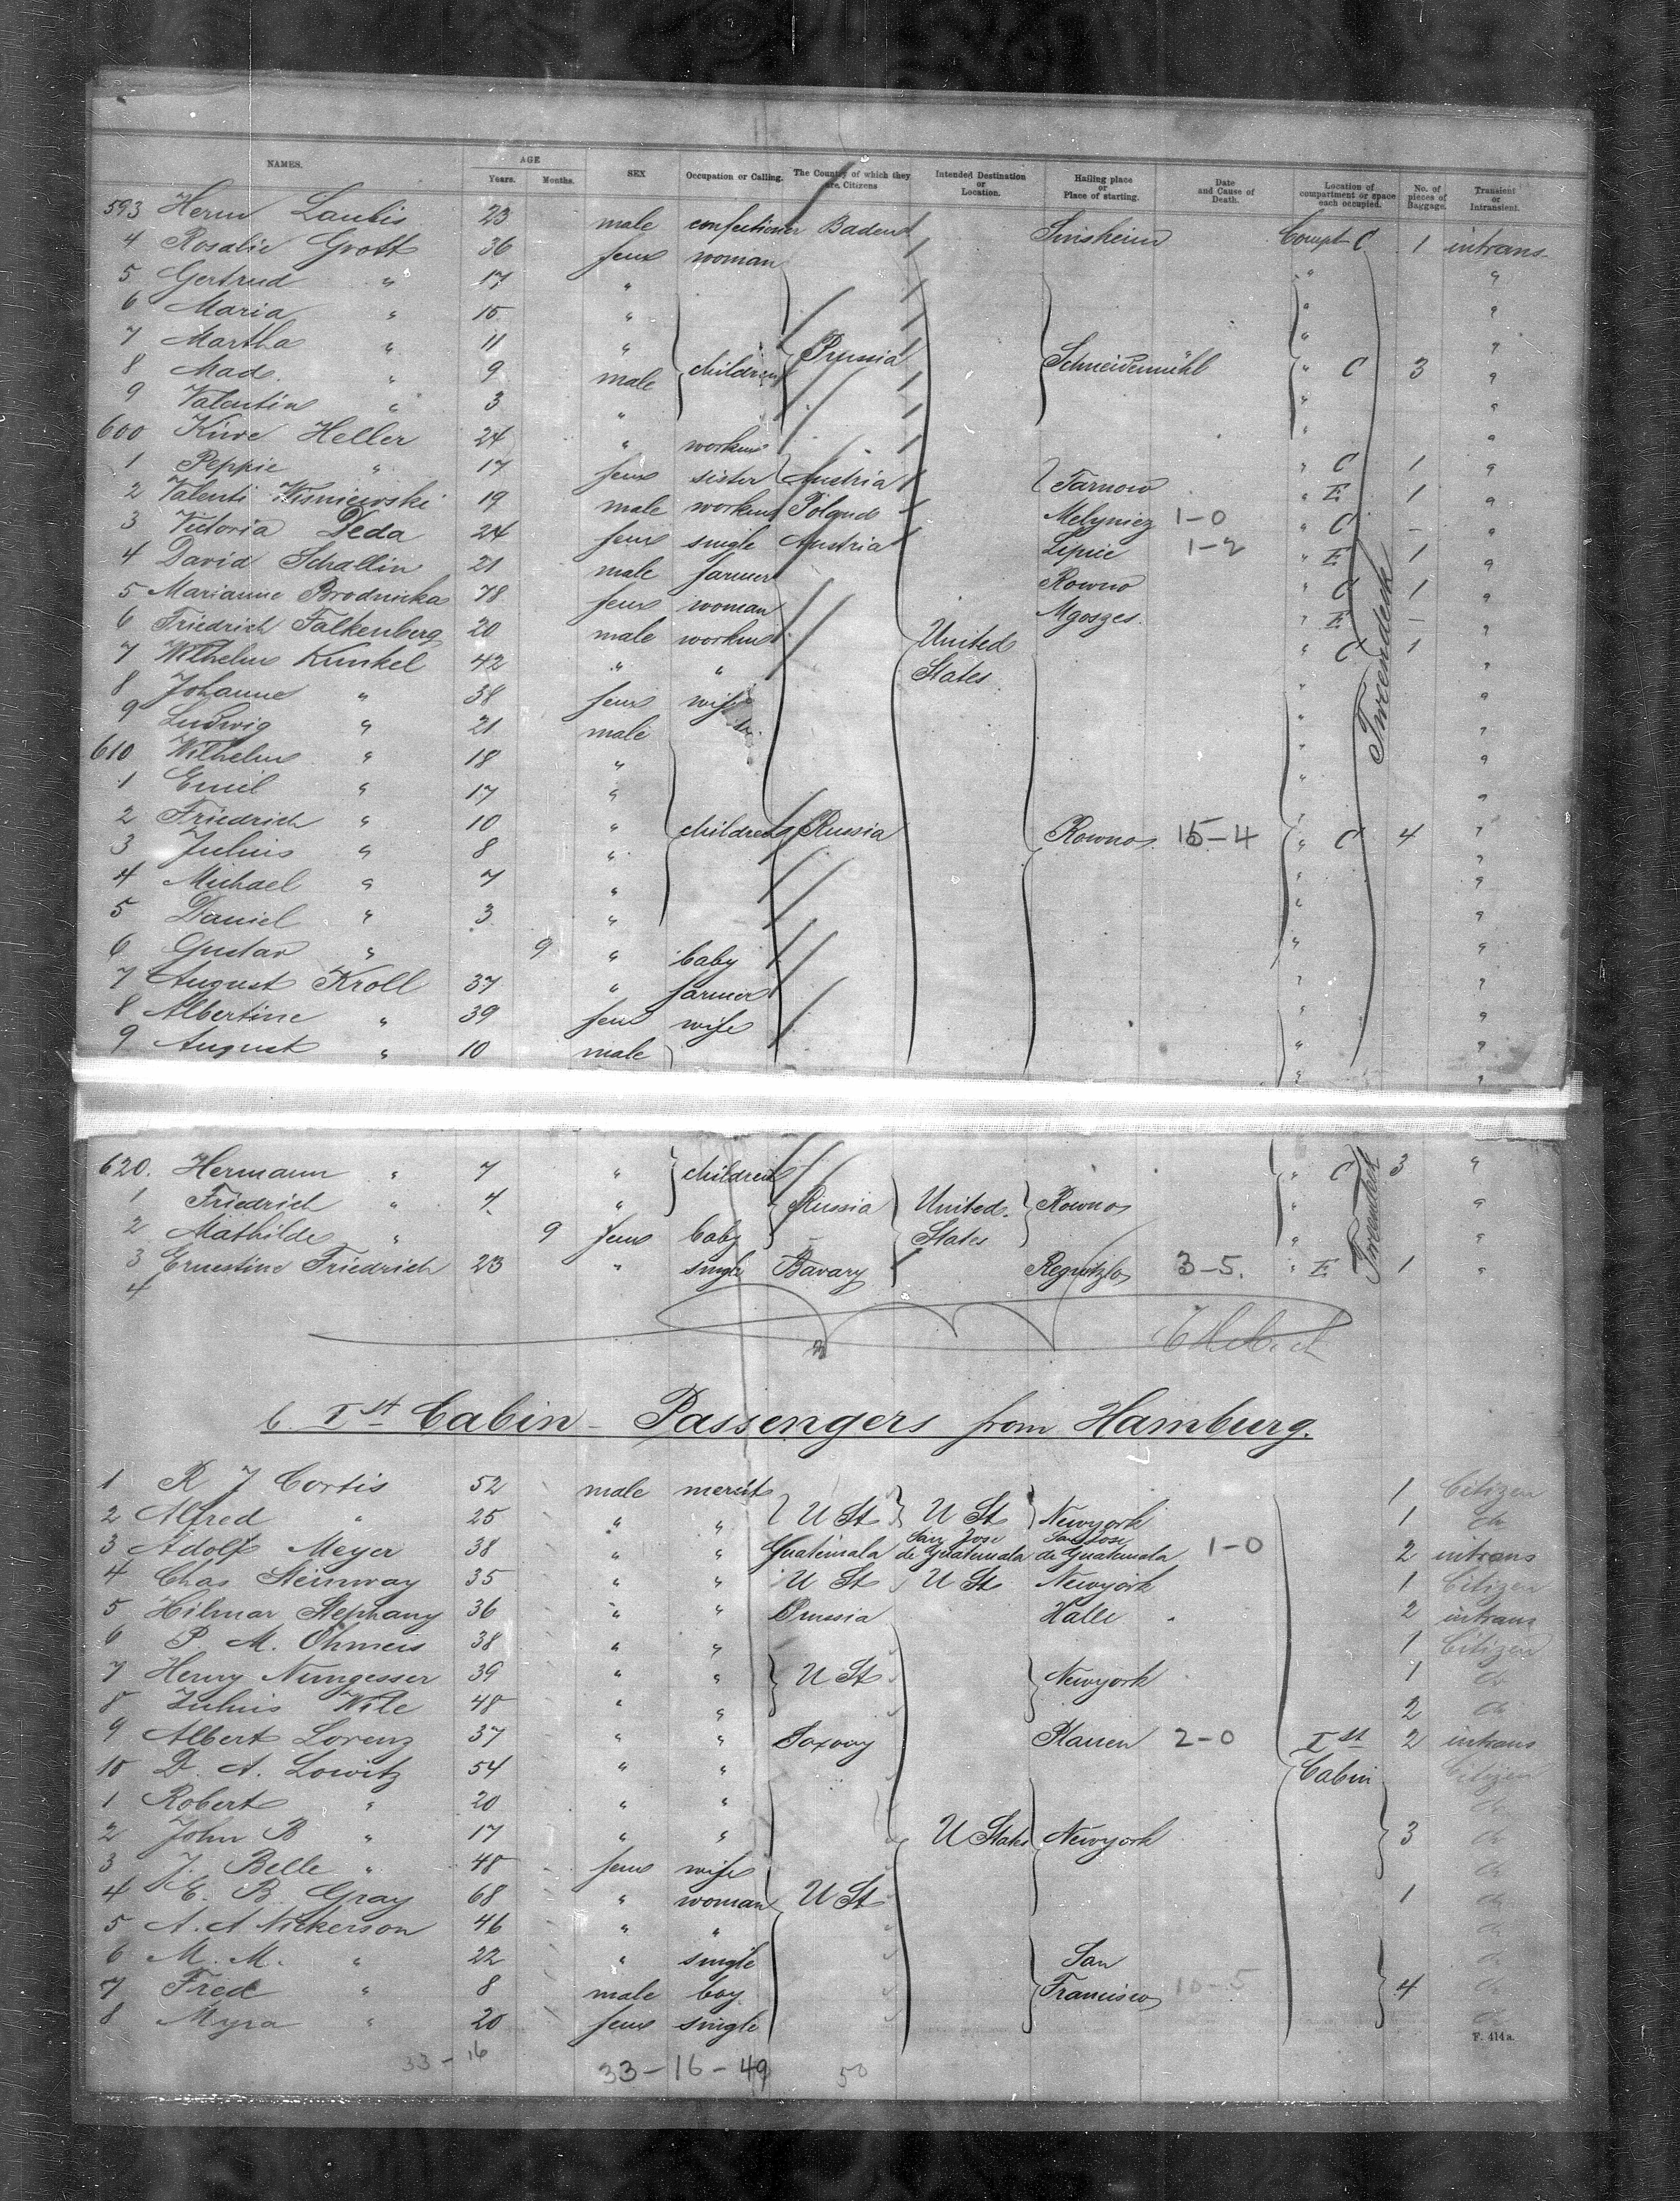 NAMES. AGE Years. Months. SEX Occupation or Calling. The Country of which they are Citizens Intended Destination or Location. Hailing place or Place of starting. Date and Cause of Death. Location of compartment or space each occupied. No. of pieces of Baggage. Transient or Intransient.
593 Herm Laubis 23 male confectioner Baden Sinsheim Compt C 1 intrans.
4 Rosalie Grott 36 fem woman " "
5 Gertrud " 17 " " "
6 Maria " 15 " " "
7 Martha " 11 " children Prussia Schneidemühl " C 3 "
8 Mad. " 9 male " "
9 Valentin " 3 " " "
600 Heller 24 " workm "
1 Peppie " 17 fem sister Austria Tarnow " C 1 "
2 Valenti Wisniewski 19 male workm Poland 1-0 " E 1 "
3 Victoria Deda 24 fem single Austria Lipnie 1-2 " C - "
4 David Schallin 21 male farmer Rowno " E 1 "
5 Marianne Brodnicka 78 fem woman Mgoszes. " C 1 "
6 Friedrich Falkenberg 20 male workm United States " E - "
7 Wilhelm Kunkel 42 " " " C 1 "
8 Johanne " 38 fem wife " "
9 Ludwig " 21 male " "
610 Wilhelm " 18 " " "
1 Emil " 17 " " "
2 Friedrich " 10 " children Russia Rowno 15-4 " C 4 "
3 Julius " 8 " " "
4 Michael " 7 " " "
5 Daniel " 3 " " "
6 Gustav " 9 " baby " "
7 August Kroll 37 " farmer " "
8 Albertine " 39 fem wife " "
9 August " 10 male " "
Tweendeck
620. Hermann " 7 " children " C 3 "
1 Friedrich " 4 " Russia United States Rowno " "
2 Mathilde " 9 fem baby " "
3 Ernestine Friedrich 23 " single Bavary Regnitzlo 3-5. " E 1 "
4
Tweendeck
6. Ist Cabin - Passengers from Hamburg.
1 R J Cortis 52 male mercht 1 Citizen
2 Alfred " 25 " " U St U St Newyork 1 do
3 Adolf Meyer 38 " " Guatemala San Jose de Guatemala San Jose de Guatemala 1-0 2 intrans
4 Chas Steinway 35 " " U St U St Newyork 1 Citizen
5 Hilmar Stephany 36 " " Prussia Halle 2 intrans
6 P. M. Ohmeis 38 " " 1 Citizen
7 Henry Nungesser 39 " " U St Newyork 1 do
8 Julius Wile 48 " " 2 do
9 Albert Lorenz 37 " " Saxony Plauen 2-0 Ist Cabin 2 intrans
10 D. A. Lowitz 54 " " Citizen
1 Robert " 20 " " do
2 John B " 17 " " U States Newyork 3 do
3 J. Belle " 48 fem wife do
4 E. B. Gray 68 " woman U St 1 do
5 A. A Nickerson 46 " " do
6 M. M. " 22 " single San Francisco do
7 Fred " 8 male boy 10-5 4 do
8 Myra " 20 fem single do
F. 414a.
33-16 33-16-49 50